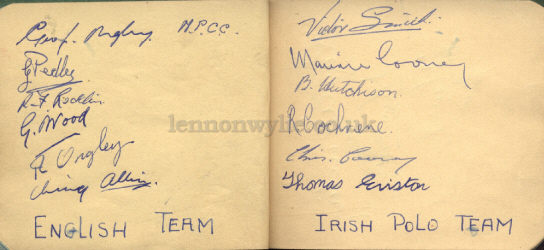 Geof. M.P.C.C.
G Pedley
R. F. Rocklin
G. Wood
Ongley
Allin.
ENGLISH TEAM
Victor Smith.
Maurice Cooney
B. Hutchison.
R Cochrane.
Chris. Cooney
Thomas Eviston
IRISH POLO TEAM
lennonwylie.co.uk